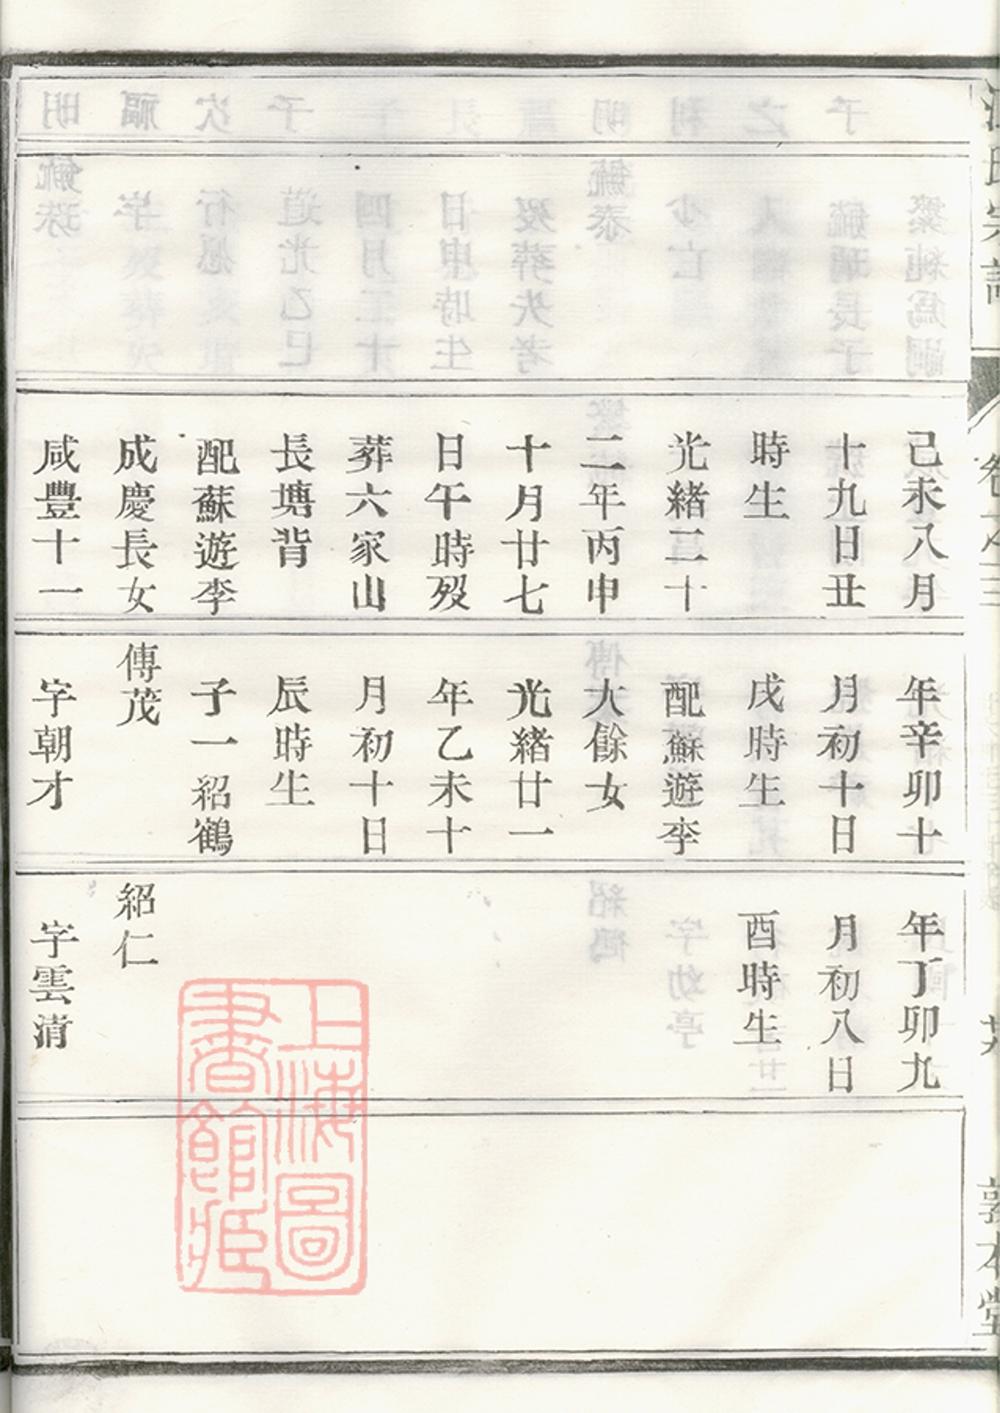 己未八月
十九日丑
時生
光緒二十
二年丙申
十月廿七
日午時歿
葬六家山
長塘背
配蘇遊李
成慶長女
咸豐十一
年辛卯十
月初十日
戌時生
配蘇遊李
大餘女
光緒廿一
年乙未十
月初十日
辰時生
子一紹鶴
傳茂
字朝才
年丁卯九
月初八日
酉時生
紹仁
字雲清
卷之三
敦本堂
上海圖
書館藏